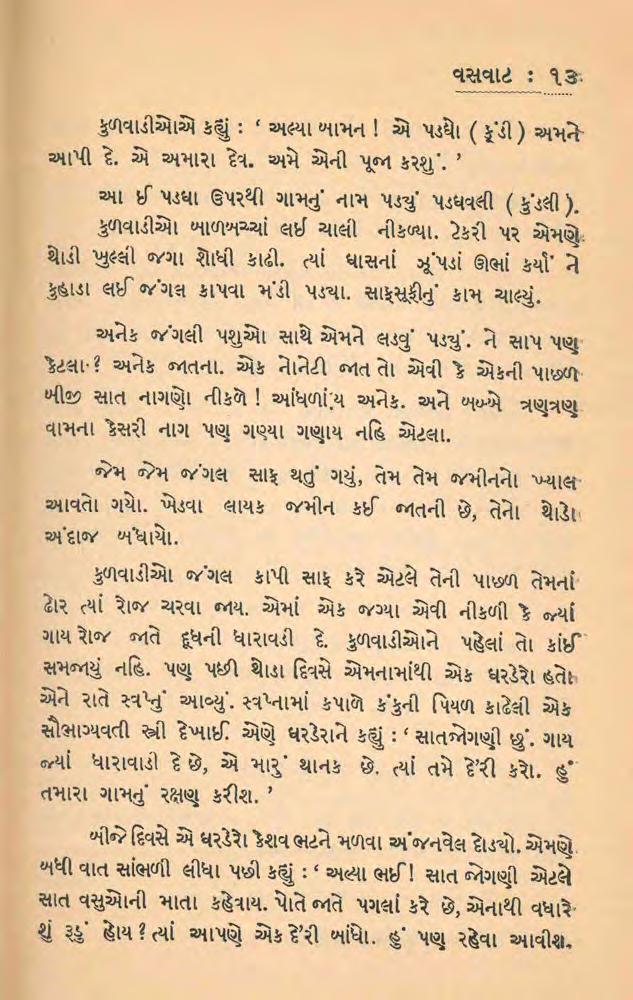 વસવાટ : ૧૩
કુળવાડીઓએ કહ્યું : ‘ અલ્યા બામન ! એ પડઘો ( કૂંડી ) અમને
આપી દે. એ અમારા દેવ. અમે એની પૂજા કરશું. ’
આ ઈ પડઘા ઉપરથી ગામનું નામ પડ્યું પડઘવલી ( કુંડલી ).
કુળવાડીઓ બાળબચ્ચાં લઈ ચાલી નીકળ્યા. ટેકરી પર એમણે
થોડી ખુલ્લી જગા શોધી કાઢી. ત્યાં ઘાસનાં ઝૂંપડાં ઊભાં કર્યાં ને
કુહાડા લઈ જંગલ કાપવા મંડી પડ્યા. સાફસૂફીનું કામ ચાલ્યું.
અનેક જંગલી પશુઓ સાથે એમને લડવું પડ્યું. ને સાપ પણ
કેટલા ? અનેક જાતના. એક નોનેટી જાત તો એવી કે એકની પાછળ
બીજી સાત નાગણો નીકળે ! આંધળાંય અનેક. અને બબ્બે ત્રણત્રણ
વામના કેસરી નાગ પણ ગણ્યા ગણાય નહિ એટલા.
જેમ જેમ જંગલ સાફ થતું ગયું, તેમ તેમ જમીનનો ખ્યાલ
આવતો ગયો. ખેડવા લાયક જમીન કઈ જાતની છે, તેનો થોડો
અંદાજ બંધાયો.
કુળવાડીઓ જંગલ કાપી સાફ કરે એટલે તેની પાછળ તેમનાં
ઢોર ત્યાં રોજ ચરવા જાય. એમાં એક જગ્યા એવી નીકળી કે જ્યાં
ગાય રોજ જાતે દૂધની ધારાવડી દે. કુળવાડીઓને પહેલાં તો કાંઈ
સમજાયું નહિ. પણ પછી થોડા દિવસે એમનામાંથી એક ઘરડેરો હતો
એને રાતે સ્વપ્નું આવ્યું. સ્વપ્નામાં કપાળે કંકુની પિયળ કાઢેલી એક
સૌભાગ્યવતી સ્ત્રી દેખાઈ. એણે ઘરડેરાને કહ્યું : ‘ સાતજોગણી છું. ગાય
જ્યાં ધારાવાડી દે છે, એ મારું થાનક છે. ત્યાં તમે દે'રી કરો. હું
તમારા ગામનું રક્ષણ કરીશ. ’
બીજે દિવસે એ ઘરડેરો કેશવ ભટને મળવા અંજનવેલ દોડ્યો. એમણે
બધી વાત સાંભળી લીધા પછી કહ્યું : ‘ અલ્યા ભઈ ! સાત જોગણી એટલે
સાત વસુઓની માતા કહેવાય. પોતે જાતે પગલાં કરે છે, એનાથી વધારે
શું રૂડું હોય ? ત્યાં આપણે એક દે'રી બાંધો. હું પણ રહેવા આવીશ.